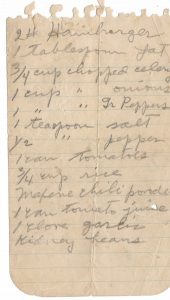 2# Hamburger
1 tablespoon fat
3/4 cup chopped celery
1 cup " onions
1 " " Gr Peppers
1 teaspoon salt
1/2 " pepper
1 can tomatoes
3/4 cup rice
chili powde
1 can tomato juice
1 clove garlic
Kidney beans